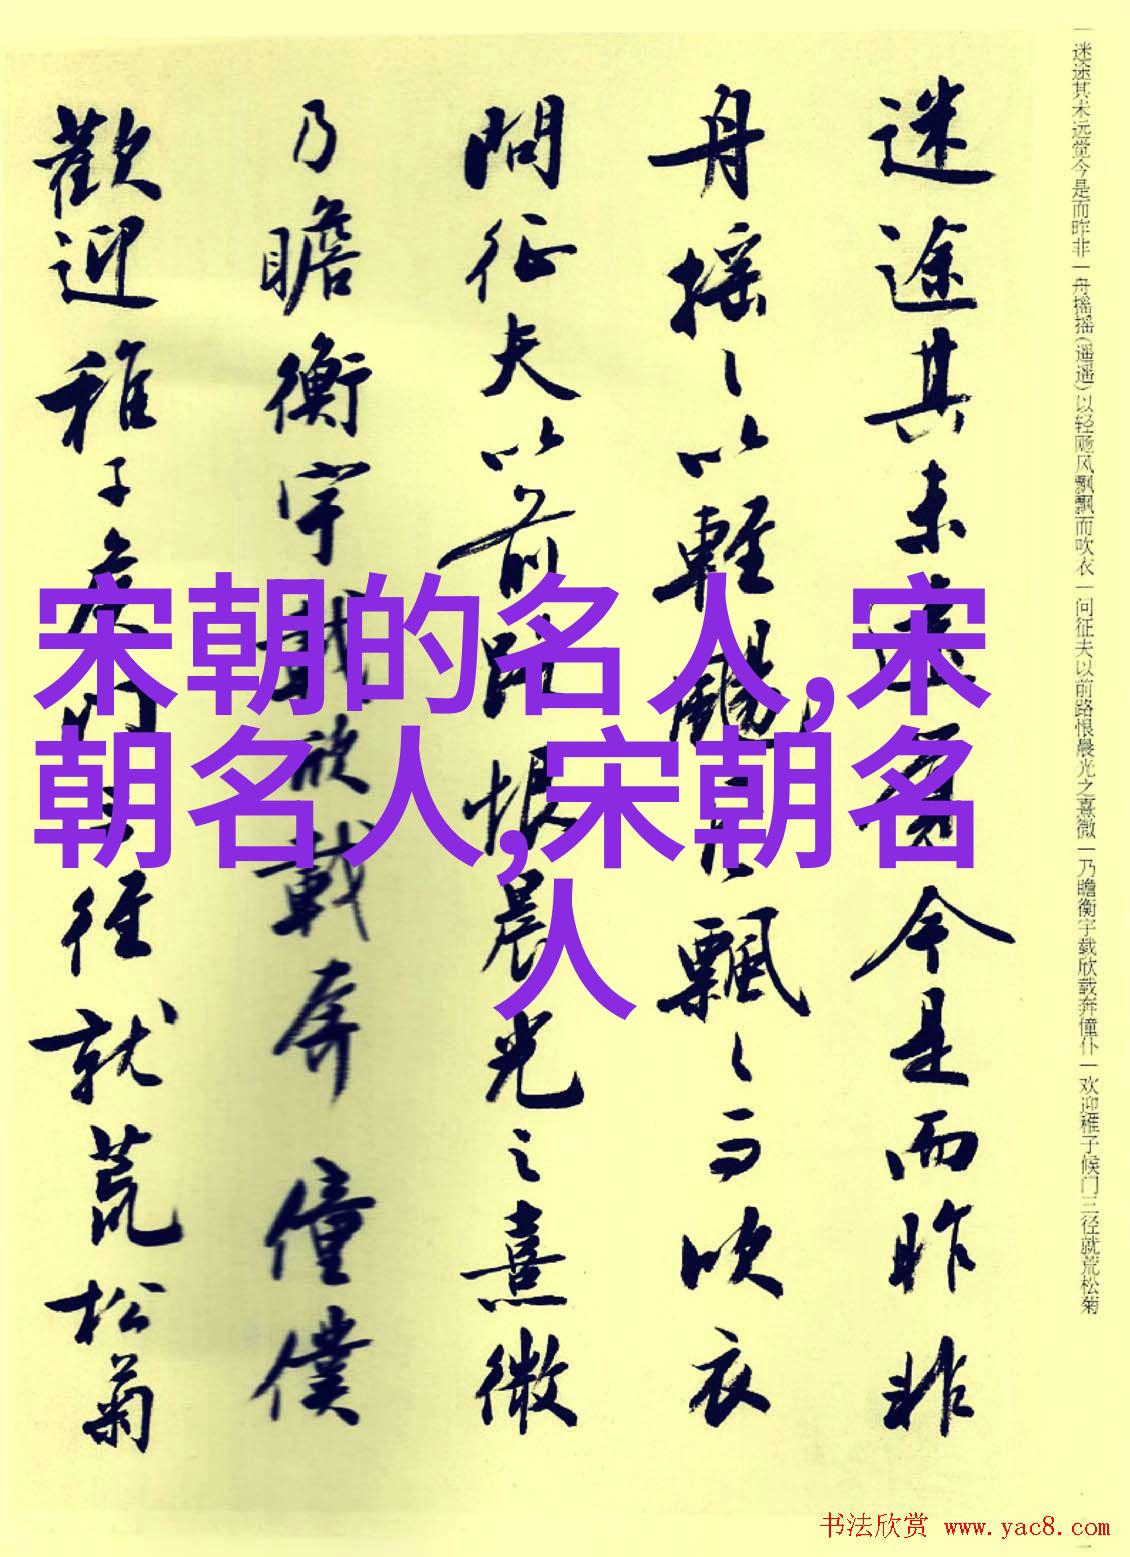 一迷途其未远觉今是而昨非一舟摇摇(遥遥)以轻飏风飘飘而吹衣一问征夫以前路恨晨光之熹微一乃瞻衡宇载欣载奔僮仆一欢迎稚子候门三径就荒松菊
迷途其未遠覺今是而昨非
舟摇〻以輕颺風飄〻而吹衣
問征夫以前路恨晨光之熹微
乃瞻衡宇載欣載奔僮僕
歡迎稚子候門三徑就荒松菊
宋朝的名人,宋
朝名人,宋朝名
人
书法欣赏 www.yac8.com